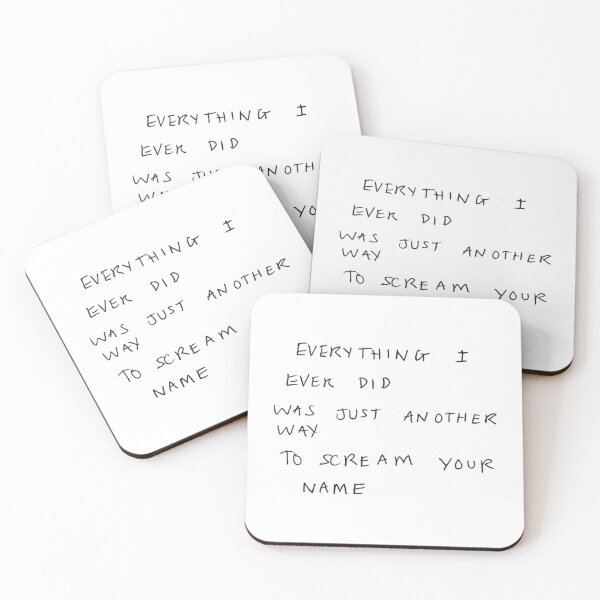 EVERYTHING I
EVER DID
WAS JUST ANOTH
YO
EVERYTHING I
EVER DID
WAS JUST ANOTHER
WAY
TO SCREAM YOUR
EVERYTHING I
EVER DID
WAS JUST ANOTHER
WAY
TO SCREAM
NAME
EVERYTHING I
EVER DID
WAS JUST ANOTHER
WAY
TO SCREAM YOUR
NAME